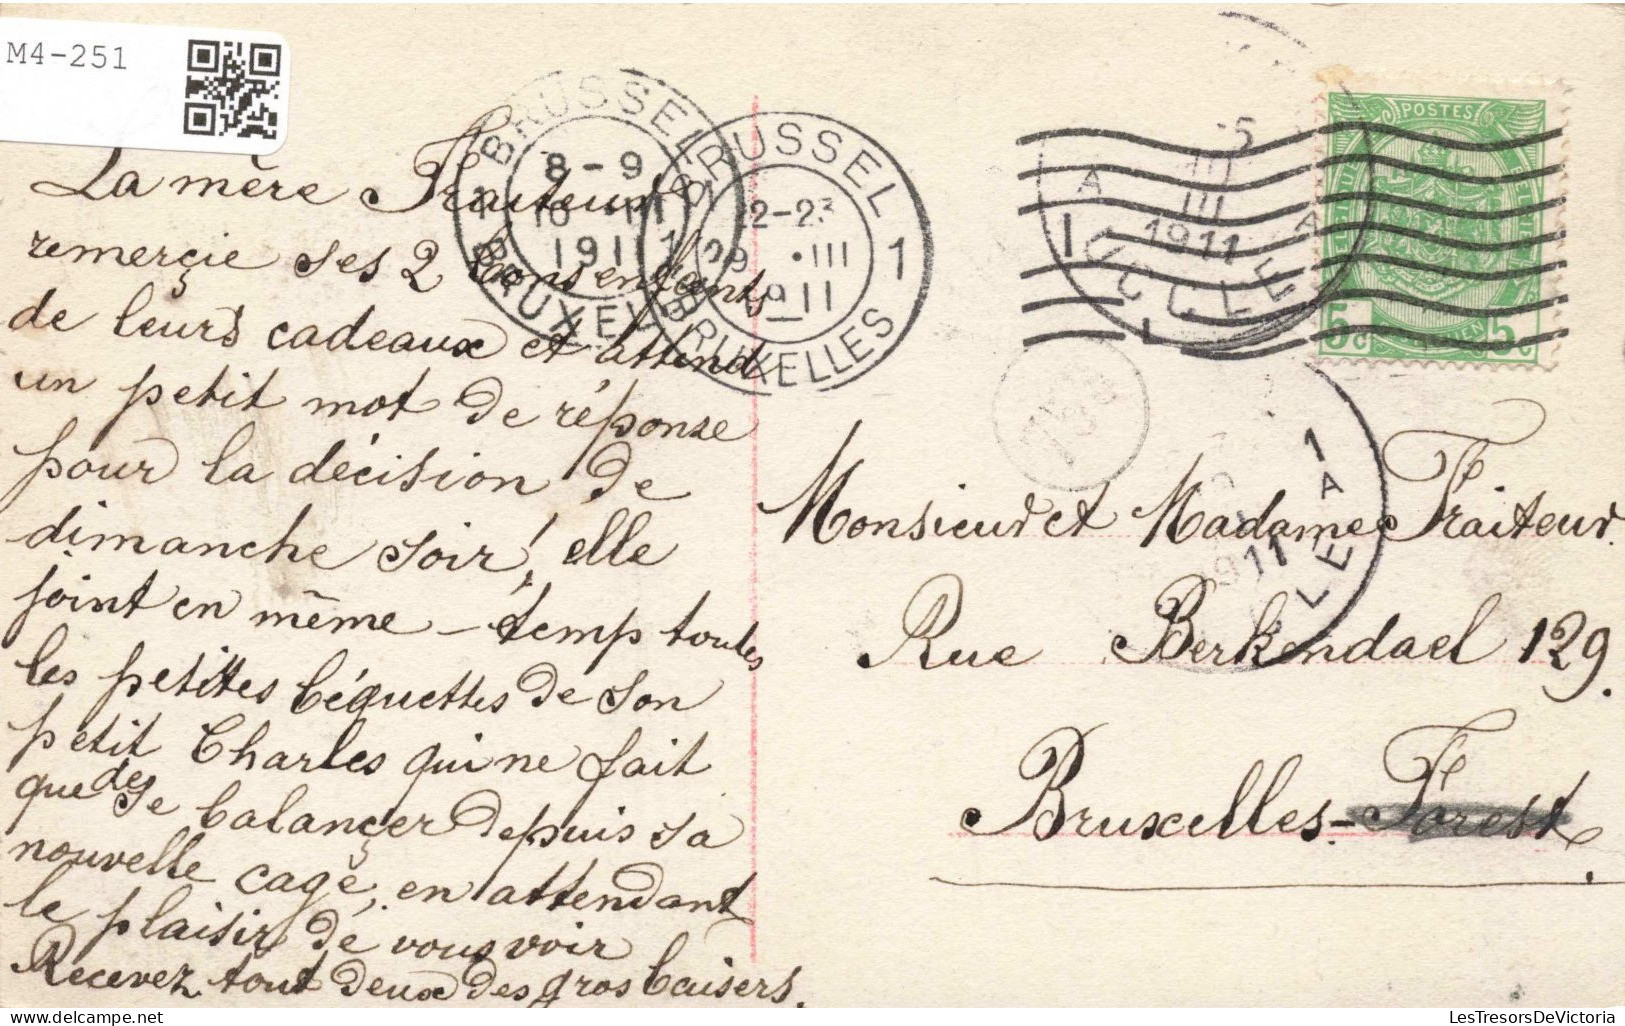 M4-251
La mère Traiteur
remerçie ses 2 bons enfants
de leurs cadeaux et attend
un petit mot de réponse
pour la décision de
dimanche soir! elle
joint en même-temp toutes
les petittes béquettes de son
petit Charles qui ne fait
que des se balançer depuis sa
nouvelle cage, en attendant
le plaisir de vous voir
Recevez tout deux des gros baisers.
BRUSSEL
8-9
1911
BRUXELLES
BRUSSEL 1
22-23
09 .III
1911
1 BRUXELLES
5
III
1911
1 UCCLE
A A
POSTES
5c 5c
1
A
1911
CLE
Monsieur et Madame Traiteur.
Rue Berkendael 129.
Bruxelles-Forest.
LesTresorsDeVictoria
delcampe.net